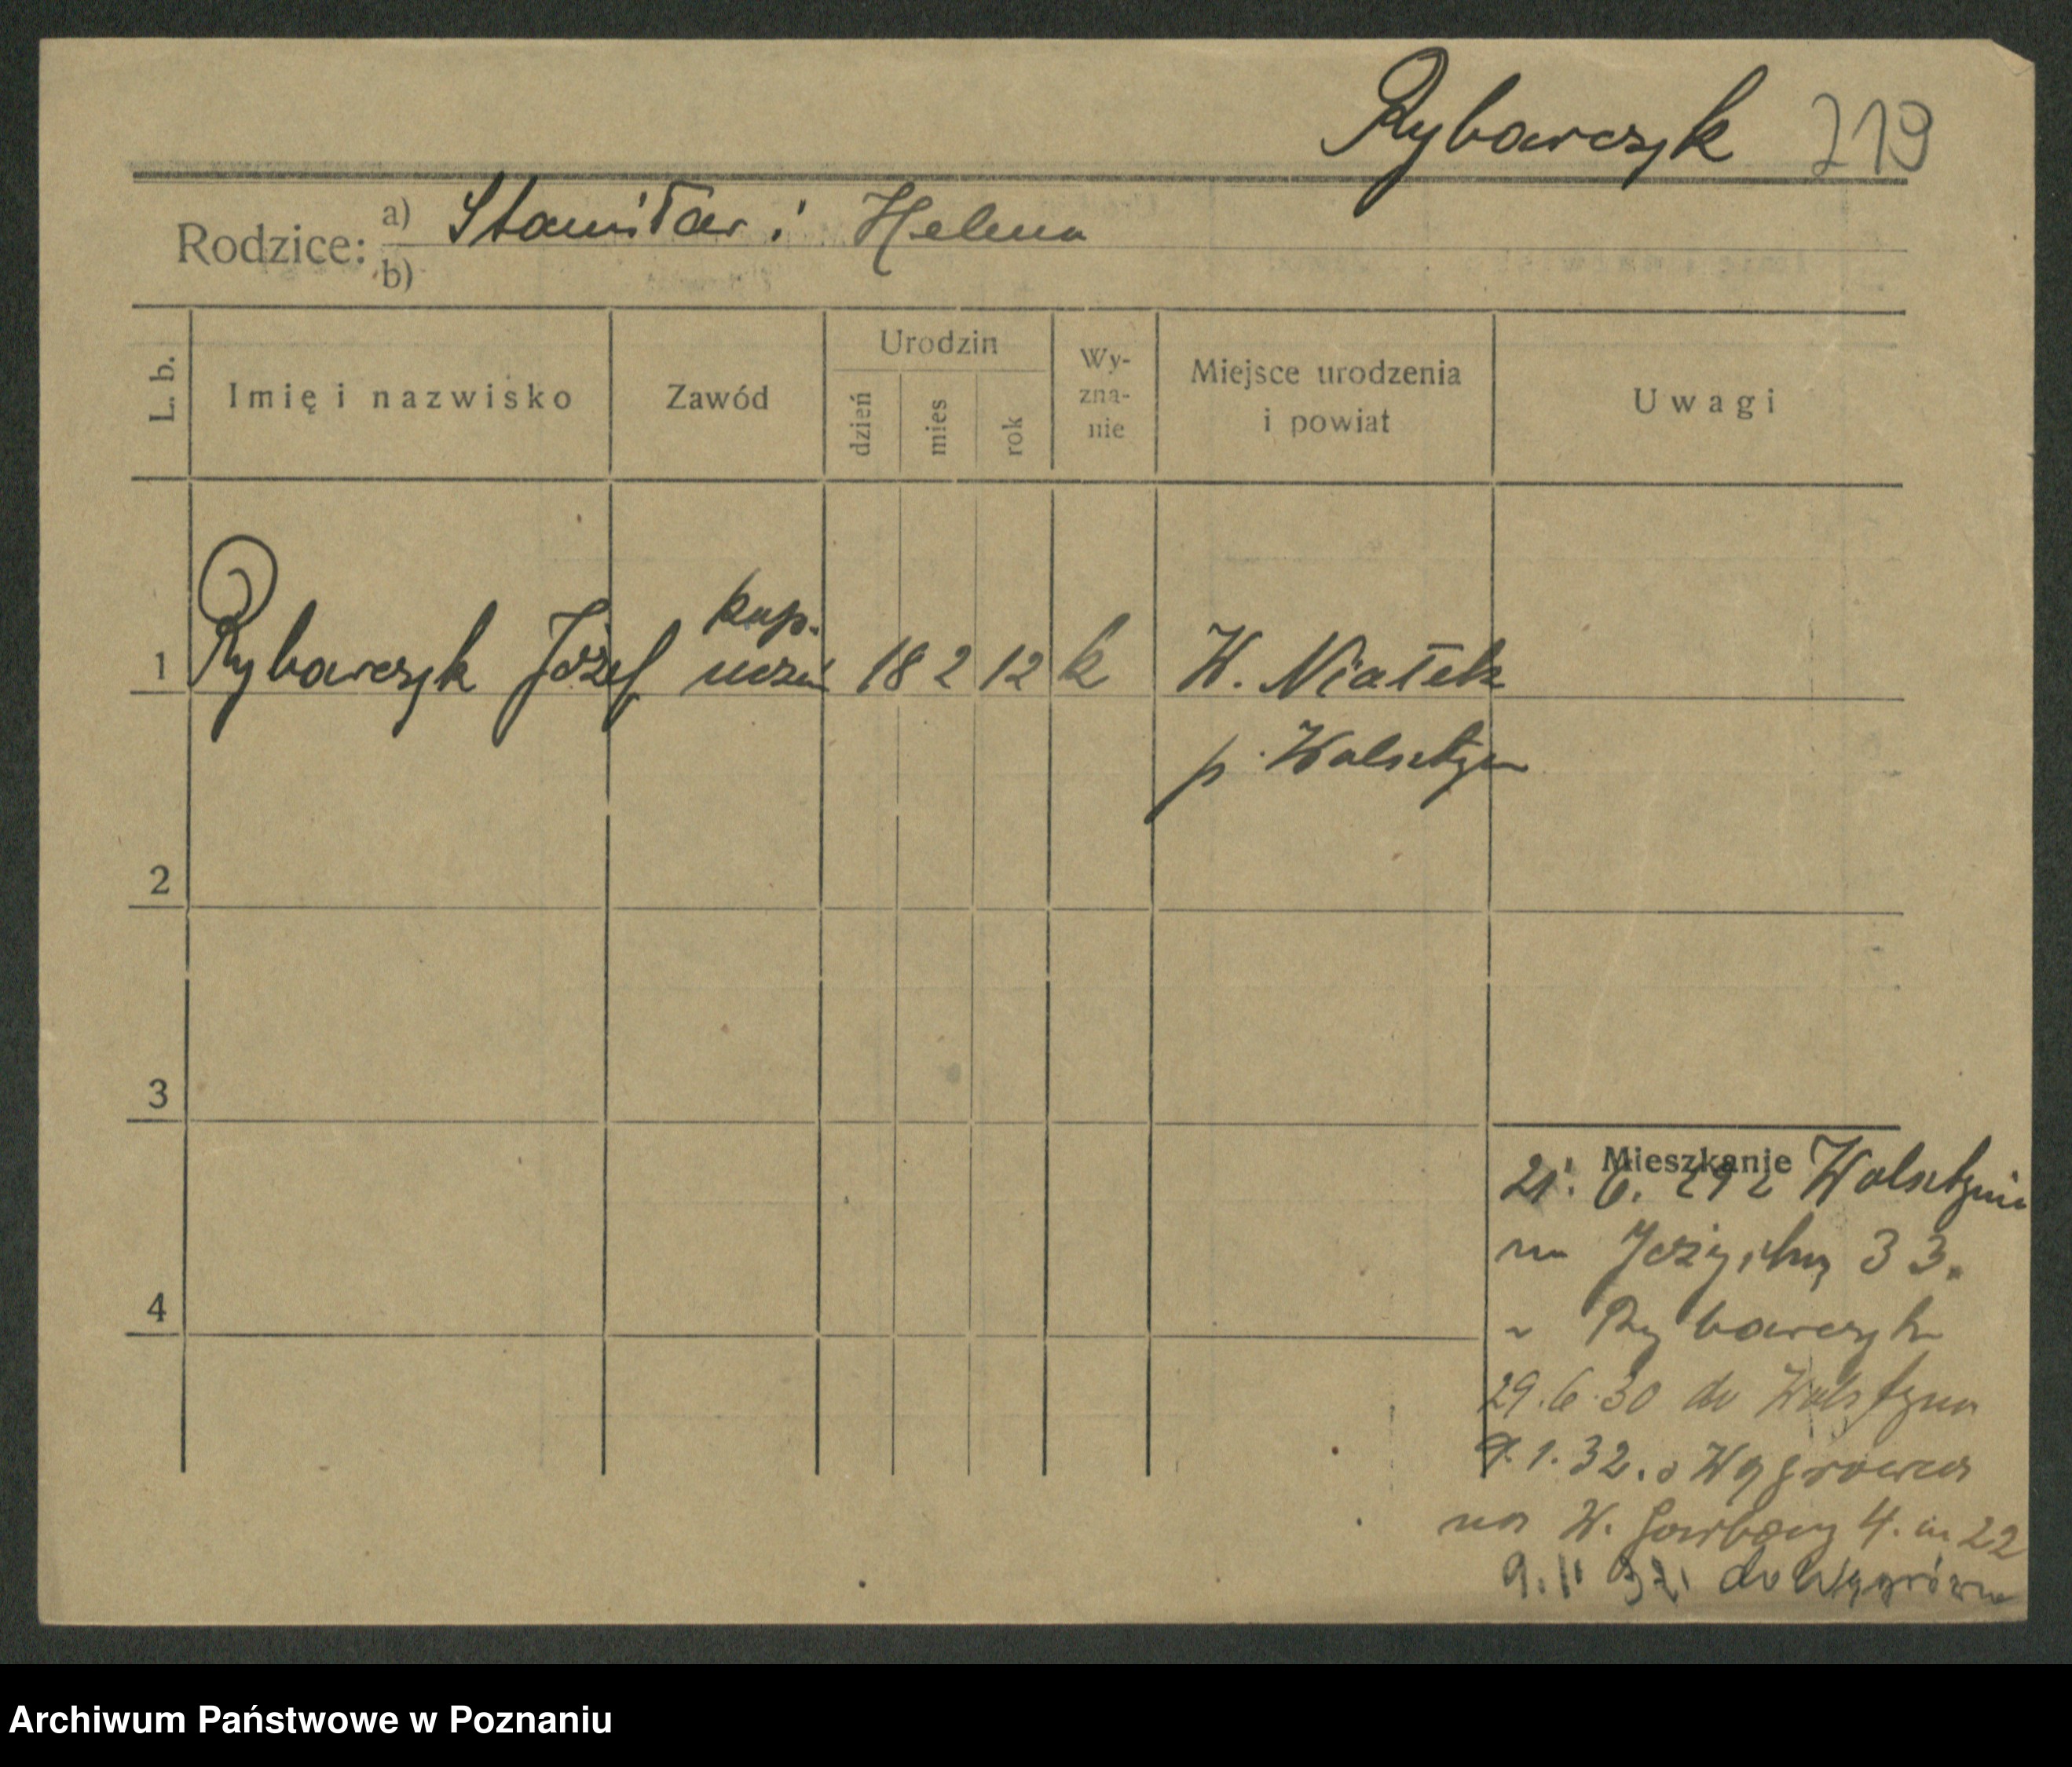 Rybarczyk 219
Rodzice: a) Stanisław i Helena
b)
L. b.
Imię i nazwisko
Zawód
Urodzin
dzień
mies
rok
Wy-
zna-
nie
Miejsce urodzenia
i powiat
Uwagi
kup.
1 Rybarczyk Józef uczeń 18 2 12 k W. Niałek
p. Wolsztyn
2
3
4
Mieszkanie
21. 6. z Wolsztyna
na 33.
Rybarczyk
29.6.30 do Wolsztyna
9.1.32. z Wągrowca
na W. Garbary 4. m 22
do
Archiwum Państwowe w Poznaniu